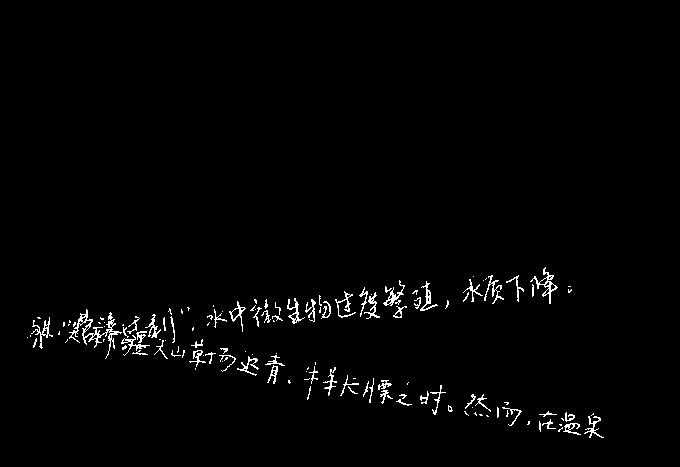 水中微生物过度繁殖，水质下降。
天山草场迟青，牛羊长膘之时。然而，在温泉